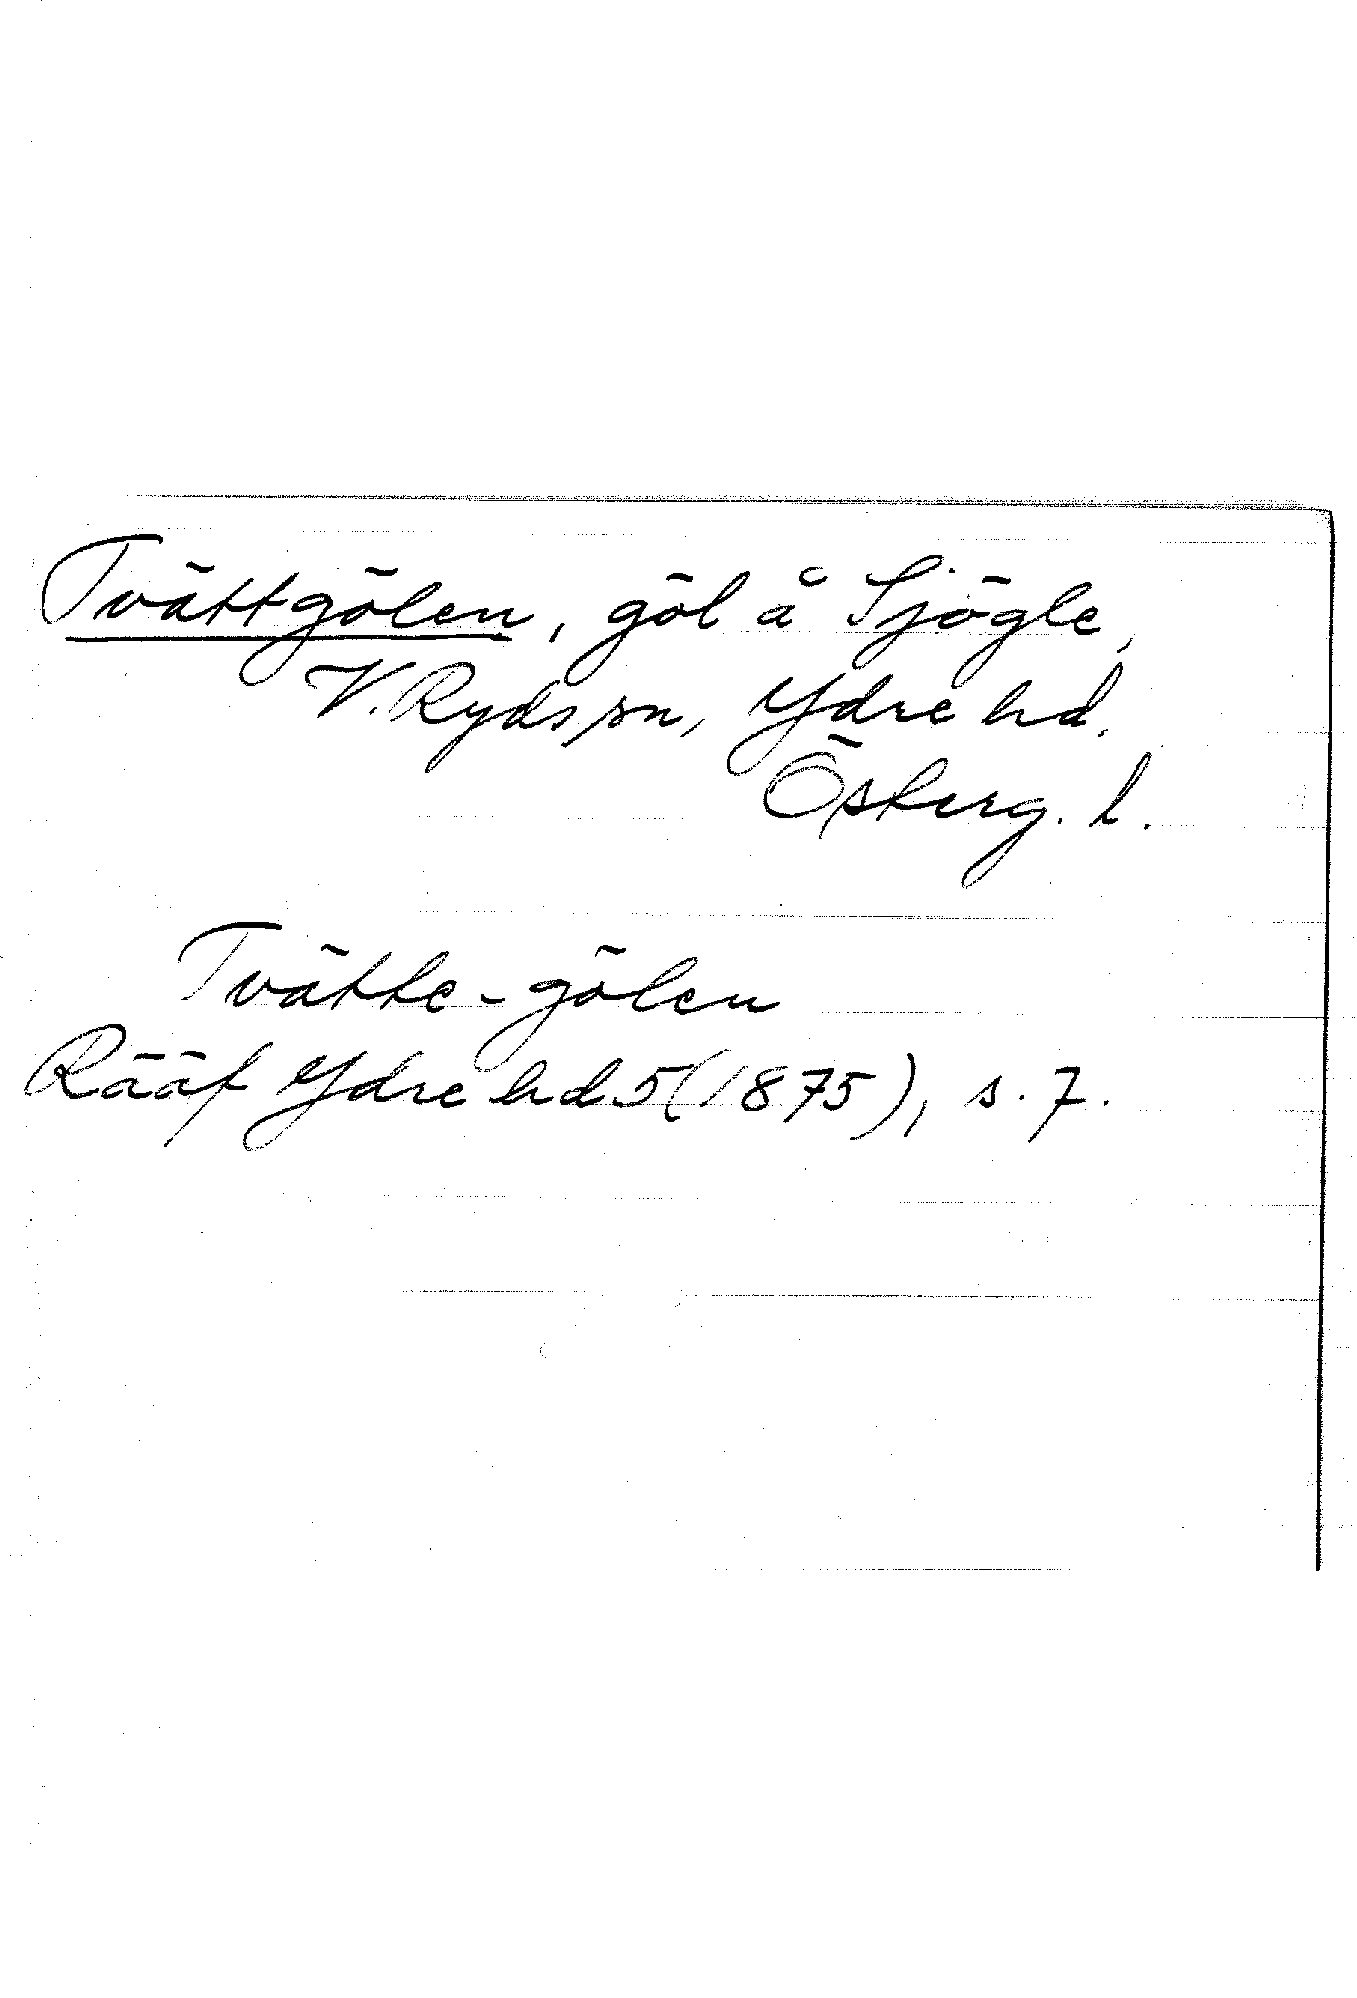 Tvättgölen, göl å Sjögle,
V. Ryds sn, Ydre hd.
Österg. l.
Tvätte-gölen
Rääf Ydre hd 5 (1875), s. 7.